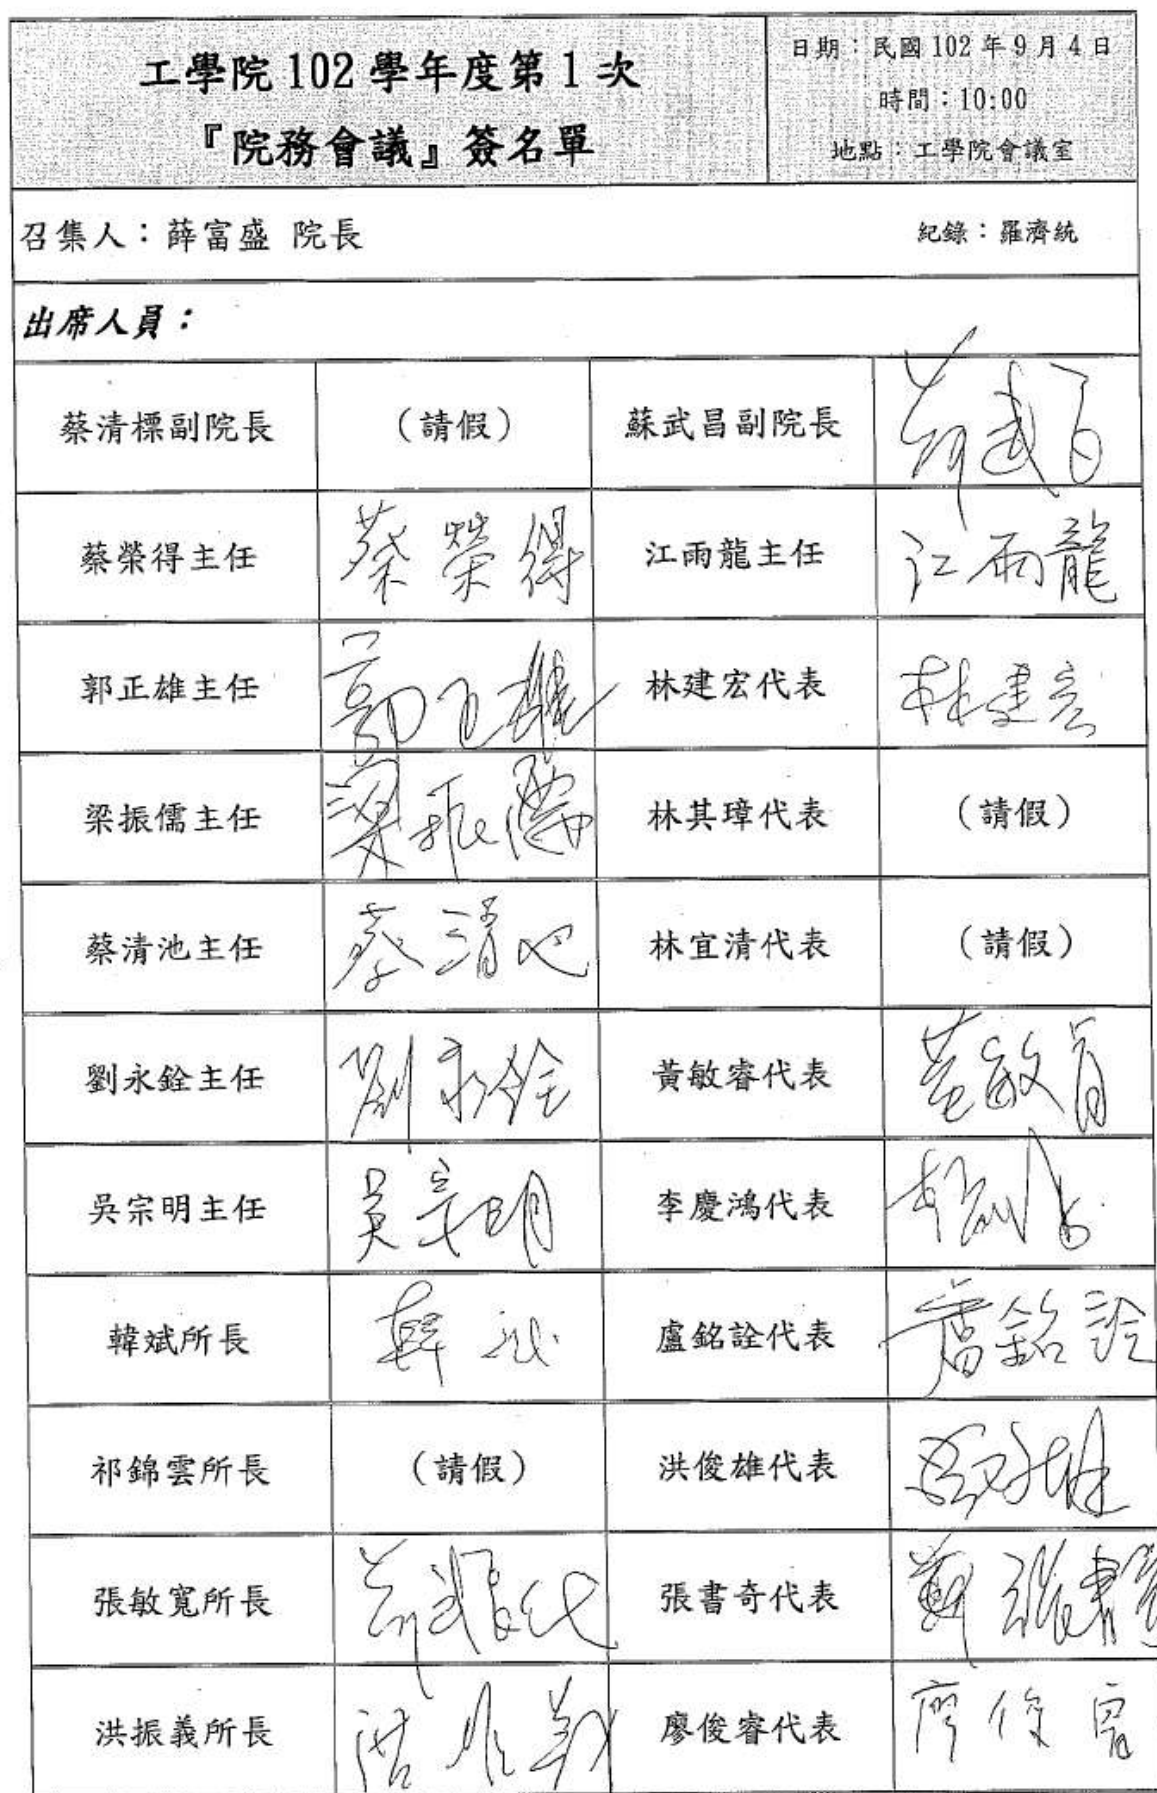 工學院 102 學年度第 1 次
『院務會議』簽名單
日期：民國 102 年 9 月 4 日
時間：10:00
地點：工學院會議室
召集人：薛富盛 院長
紀錄：羅濟統
出席人員：
蔡清標副院長 （請假） 蘇武昌副院長 蘇武昌
蔡榮得主任 蔡榮得 江雨龍主任 江雨龍
郭正雄主任 郭正雄 林建宏代表 林建宏
梁振儒主任 梁振儒 林其璋代表 （請假）
蔡清池主任 蔡清池 林宜清代表 （請假）
劉永銓主任 劉永銓 黃敏睿代表 黃敏睿
吳宗明主任 吳宗明 李慶鴻代表
韓斌所長 韓斌 盧銘詮代表 盧銘詮
祁錦雲所長 （請假） 洪俊雄代表
張敏寬所長 張書奇代表
洪振義所長 洪振義 廖俊睿代表 廖俊睿